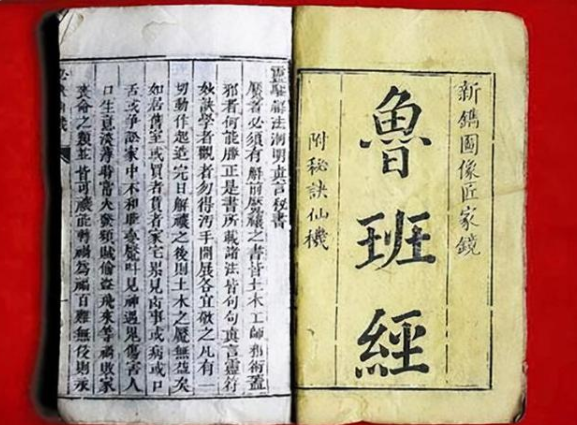 新鐫圖像匠家鏡
魯班經
附秘訣仙機
靈驅解法洞明真言秘書
魘者必須有解前魘禳之書皆土木工師邪術蓋
邪者何能勝正是書所載諸法皆句句真言靈符
妙訣學者觀者勿得汚手開展各宜敬之凡有一
切動作起造完日解禳之後則土木之魘無益矣
如居舊室或買者賃者家宅累見凶事或病或口
舌或爭訟家中不和睡魘呌見神遇鬼傷害人
口生意淡薄等當火發類賊偷盜飛來等禍敗家
喪命之類並皆可禳能轉禍為福百難無侵則永